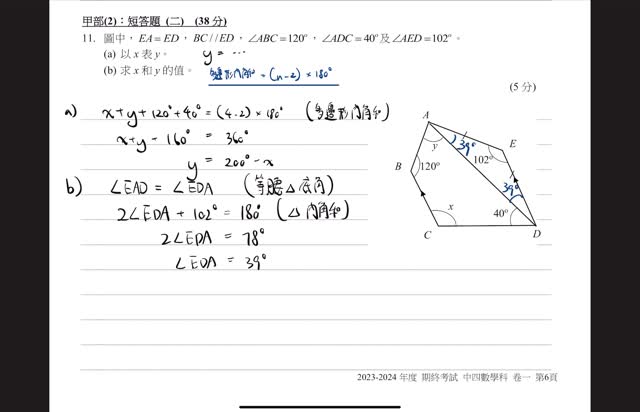 甲部(2)：短答題 (二) (38 分)
11. 圖中，EA = ED，BC // ED，∠ABC = 120°，∠ADC = 40° 及 ∠AED = 102°。
(a) 以 x 表 y。 y = ...
(b) 求 x 和 y 的值。 多邊形內角和 = (n-2) × 180°
(5 分)
a) x + y + 120° + 40° = (4-2) × 180° (多邊形內角和)
x + y - 160° = 360°
y = 200° - x
b) ∠EAD = ∠EDA (等腰△底角)
2∠EDA + 102° = 180° (△內角和)
2∠EDA = 78°
∠EDA = 39°
A
y 39° E
102°
B 120°
39°
x 40°
C D
2023-2024 年度 期終考試 中四數學科 卷一 第6頁